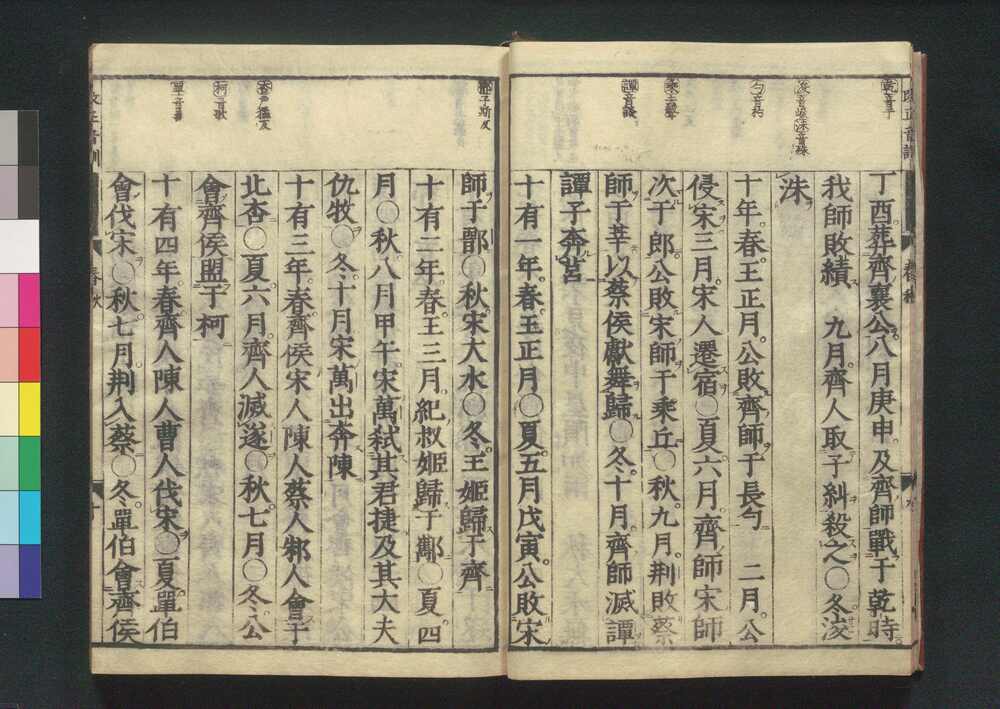 乾音干
浚音峻洙音殊
勺音杓
乘去聲
譚音談
丁酉葬齊襄公。八月庚申及齊師戰于乾時
我師敗績 九月。齊人取子糾殺之〇冬浚
洙
十年。春。王正月。公敗齊師于長勺 二月。公
侵宋三月。宋人遷宿〇夏六月。齊師宋師
次于郎。公敗宋師于乘丘〇秋。九月。荊敗蔡
師于莘。以蔡侯獻舞歸〇冬。十月。齊師滅譚
譚子奔莒
十有一年。春。王正月〇夏。五月戊寅。公敗宋
子斯反
杏戶猛反
柯音歌
單音善
師于鄑〇秋。宋大水〇冬。王姬歸于齊
十有二年。春。王三月。紀叔姬歸于酅〇夏。四
月〇秋。八月甲午。宋萬弒其君捷及其大夫
仇牧〇冬。十月宋萬出奔陳
十有三年。春。齊侯宋人陳人蔡人邾人會于
北杏〇夏。六月。齊人滅遂〇秋。七月〇冬。公
會齊侯盟于柯
十有四年。春。齊人陳人曹人伐宋〇夏。單伯
會伐宋〇秋。七月。荊入蔡〇冬。單伯會齊侯
改正音訓
春秋